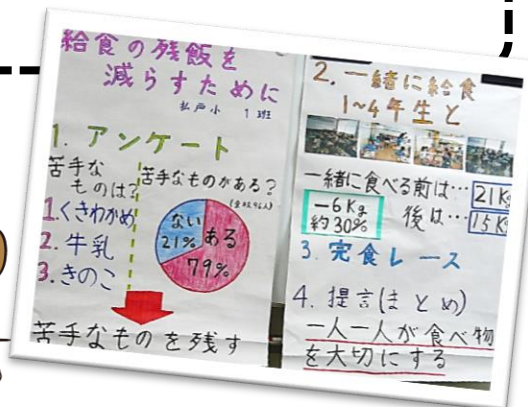 給食の残飯を
減らすために
1班
1. アンケート
苦手な
ものは?
1.くきわかめ
2. 牛乳
3.きのこ
苦手なものがある?
ない
21%
ある
79%
苦手なものを残す
2. 一緒に給食
1~4年生と
一緒に食べる前は… 21Kg
後は… 15Kg
-6Kg
約30%
3. 完食レース
4. 提言(まとめ)
一人一人が食べ物
を大切にする